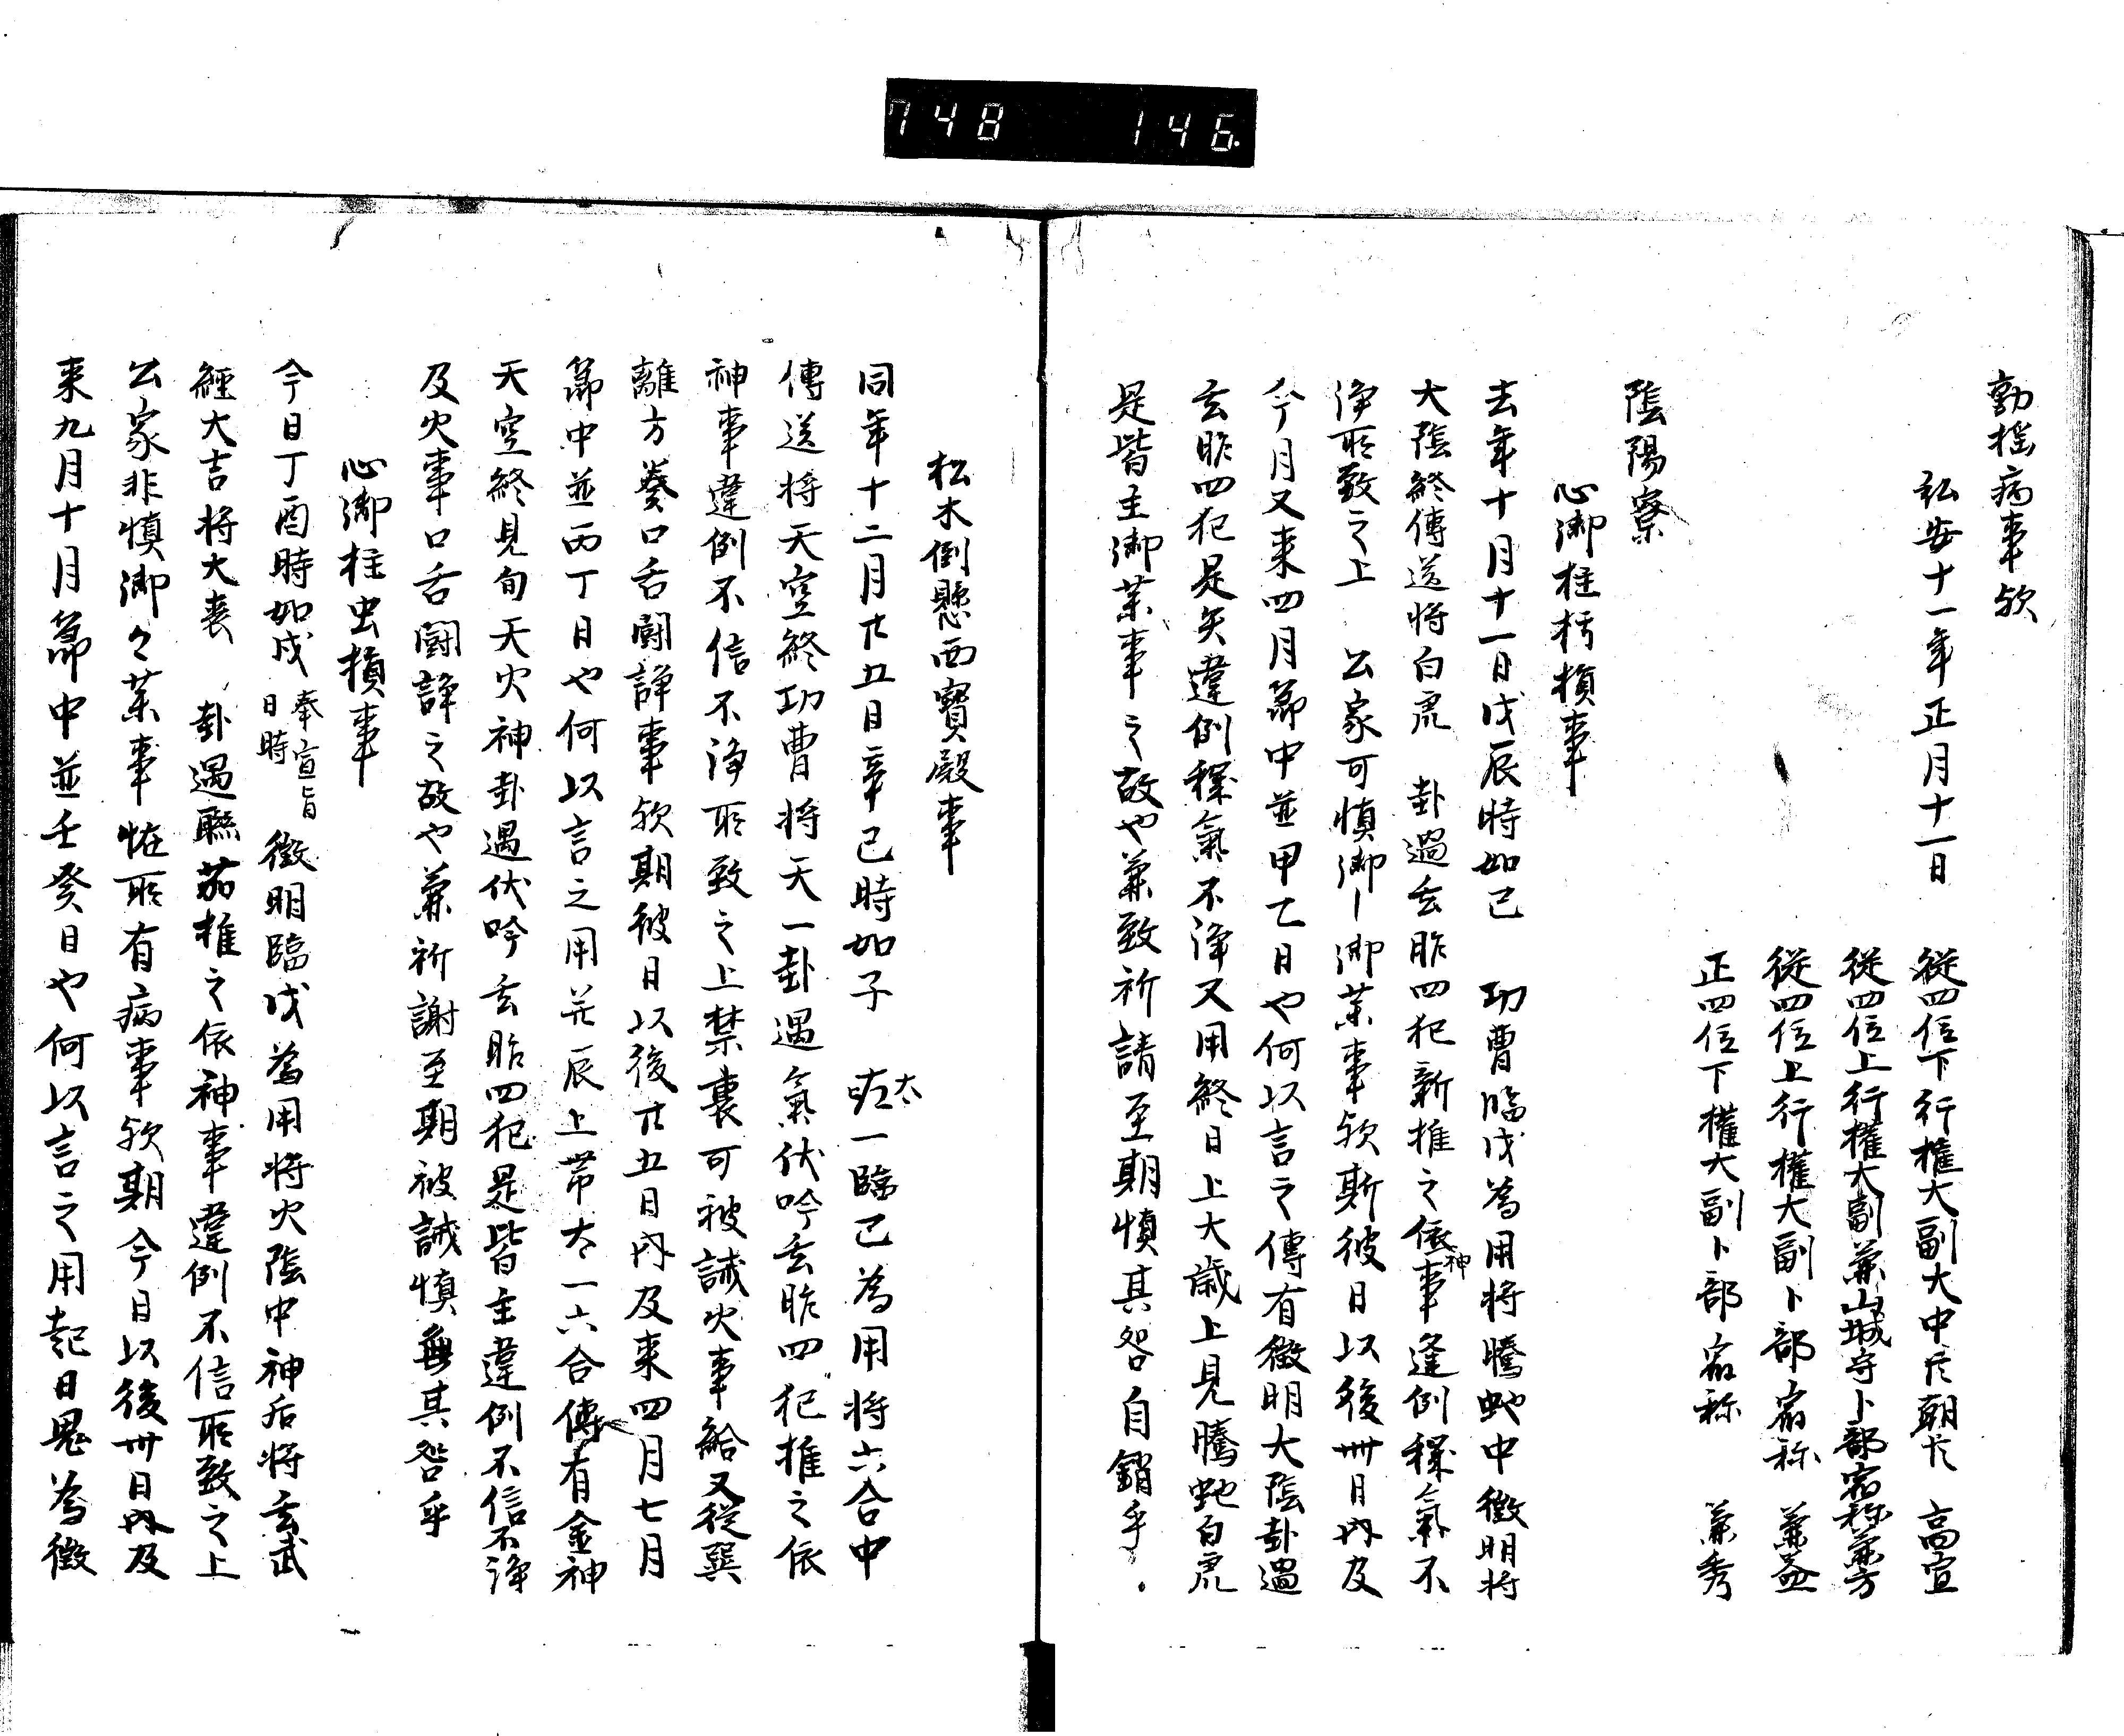 748 146
動揺病事欤
弘安十一年正月十一日
従四位下行權大副大中臣朝臣 高宣
従四位上行權大副兼山城守卜部宿祢兼方
従四位上行權大副卜部宿祢 兼益
正四位下權大副卜部宿祢 兼秀
陰陽寮
心御柱朽損事
去年十月十一日戊辰時加巳 功曹臨戊為用将騰虵中徴明将
大陰終傳送将白虎 卦遇玄胎四犯新推之依神事違例穢氣不
浄所致之上 公家可慎御〻御薬事欤斯彼日以後卅日内及
今月又来四月節中並甲乙日也何以言之傳有徴明大陰卦遇
玄胎四犯是矣違例穢氣不浄又用終日上大歳上見騰虵白虎
是皆主御薬事之故也兼致祈請至期慎其咎自銷乎
松木倒懸西寳殿事
同年十二月廿五日辛巳時加子 太一臨巳為用将六合中
傳送将天空終功曹将天一卦遇氣伏吟玄胎四犯推之依
神事違例不信不浄所致之上禁裏可被誡火事給又従巽
離方奏口舌闘諍事欤期彼日以後廿五日内及来四月七月
節中並丙丁日也何以言之用并辰上帯太一六合傳有金神
天空終見旬天火神卦遇伏吟玄胎四犯是皆主違例不信不浄
及火事口舌闘諍之故也兼祈謝至期被誡慎無其咎乎
心御柱虫損事
今日丁酉時加戌 奉宣旨日時 徴明臨戌為用将火陰中神后将玄武
経大吉将大裳 卦遇聯茹推之依神事違例不信所致之上
公家非慎御〻薬事恠所有病事欤期今日以後卅日内及
来九月十月節中並壬癸日也何以言之用起日鬼為徴